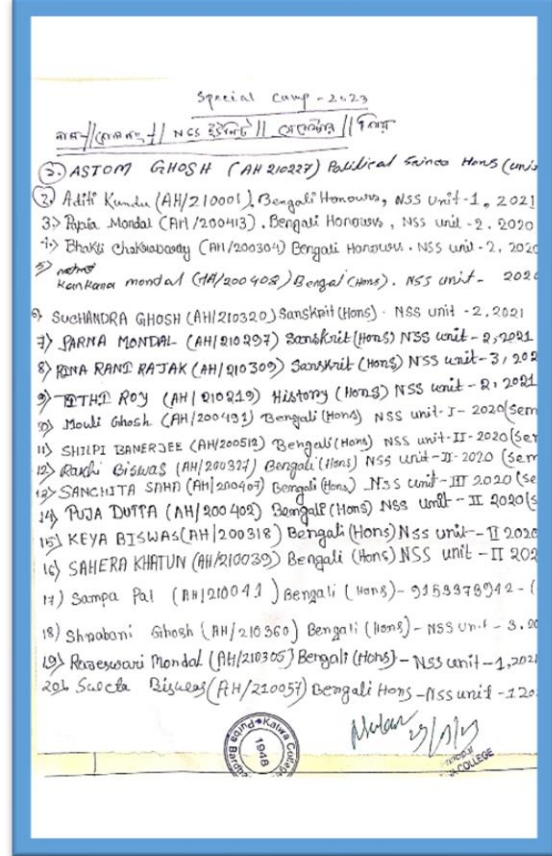 Special Camp - 2023
নাম // রোল নং // NCS ইউনিট // সেমেস্টার // বিষয়
1.) ASTOM GHOSH (AH 210227) Political Science Hons (Unit
2.) Aditi Kundu (AH/210001), Bengali Honours, NSS Unit-1, 2021
3.> Papia Mondal (AH/200413). Bengali Honours, NSS unit-2. 2020
4.> Bhakti Chakrabarty (AH/200304) Bengali Honours. NSS unit-2, 2020
5> Kankana mondal (AH/200408) Bengal (Hons). NSS unit- 2020
6> SUCHANDRA GHOSH (AH/210320) Sanskrit (Hons). NSS unit -2, 2021
7) PARNA MONDAL (AH/210297) Sanskrit (Hons) NSS unit-2, 2021
8) RINA RANI RAJAK (AH/210309) Sanskrit (Hons) NSS unit-3, 202
9) TITHI ROY (AH/210219) History (Hons) NSS unit-2, 2021
10) Mouli Ghosh (AH/200491) Bengali (Hons) NSS unit-I-2020 (Sem
11) SHILPI BANERJEE (AH/200512) Bengali (Hons) NSS unit-II-2020 (Sem
12) Rakhi Biswas (AH/200327) Bengali (Hons) NSS unit-II-2020 (Sem
13) SANCHITA SAHA (AH/200407) Bengali (Hons) NSS unit-III 2020 (Se
14) PUJA DUTTA (AH/200402) Bengali (Hons) NSS unit-II 2020 (S
15) KEYA BISWAS (AH/200318) Bengali (Hons) NSS unit-II 2020
16) SAHERA KHATUN (AH/210039) Bengali (Hons) NSS unit-II 202
17) Sampa Pal (AH/210041) Bengali (Hons)- 9153978942 - (
18) Shrabani Ghosh (AH/210360) Bengali (Hons) - NSS Unit - 3. 20
19) Rajeswari Mondal (AH/210305) Bengali (Hons) - NSS unit-1, 202
20) Sucta Biswas (AH/210057) Bengali Hons - NSS unit -1 20
Katwa College
1948
COLLEGE